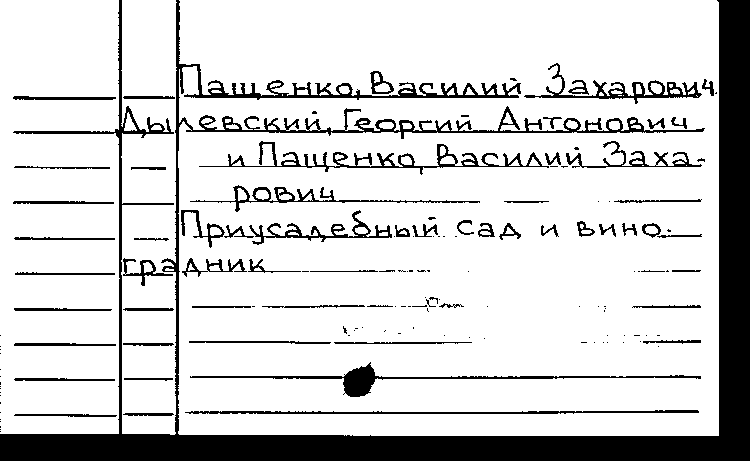 Пащенко, Василий Захарович
Дылевский, Георгий Антонович
и Пащенко, Василий Заха-
рович
Приусадебный сад и вино-
градник